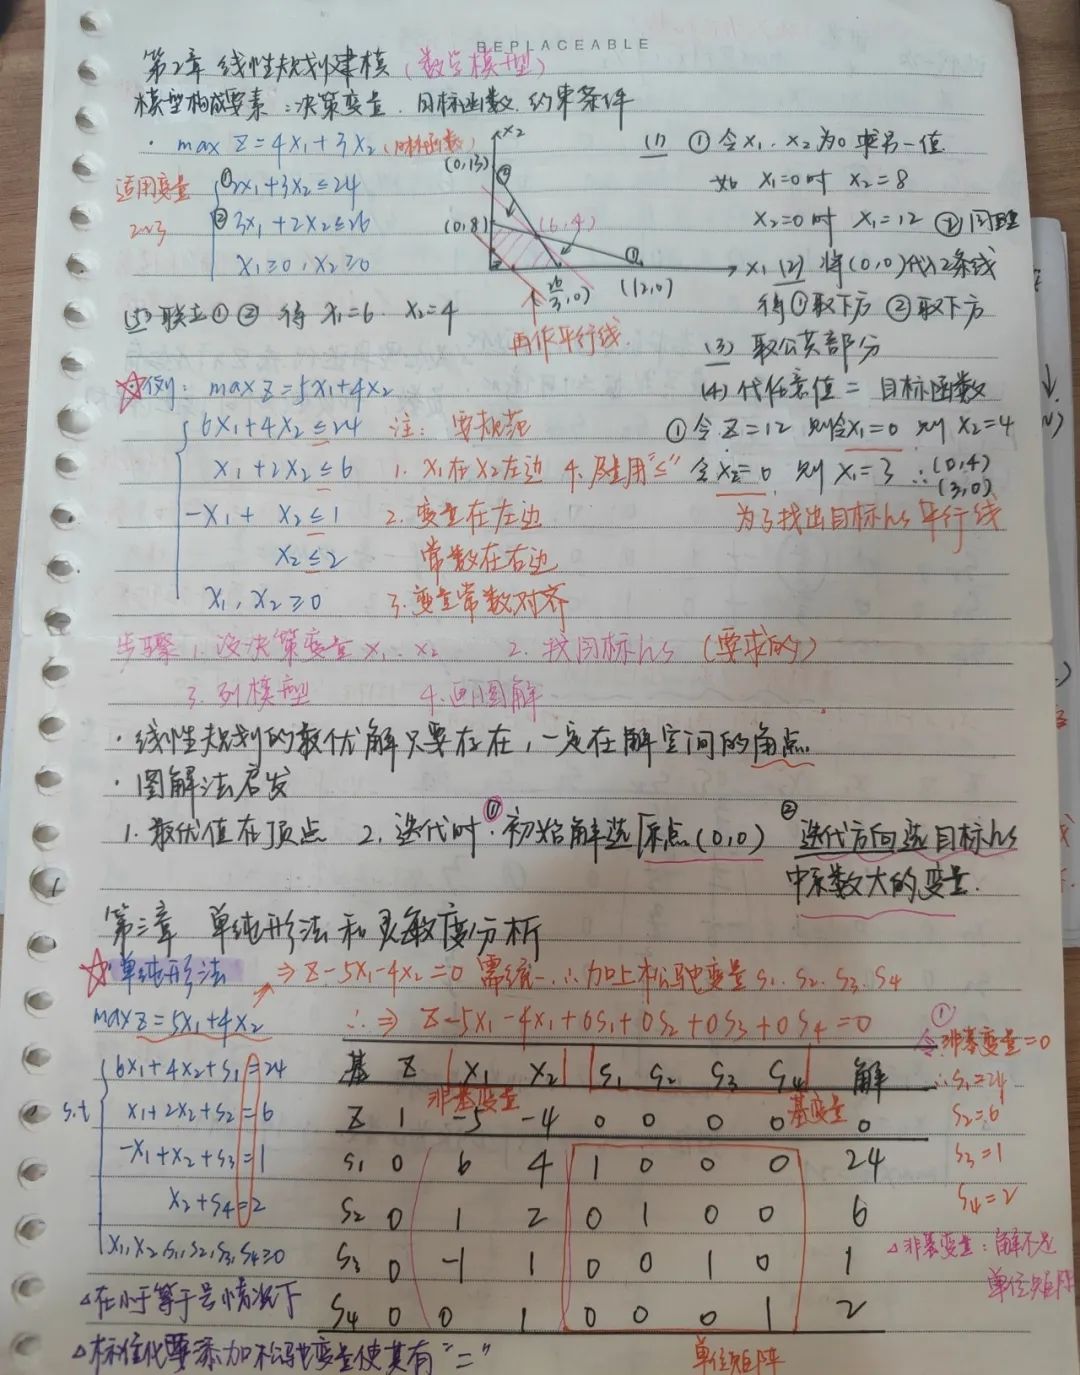 REPLACEABLE
第2章 线性规划建模（数学模型）
模型构成要素：决策变量、目标函数、约束条件
· max Z=4X1+3X2（目标函数）
适用变量
2~3
①2X1+3X2≤24
②3X1+2X2≤26
X1≥0，X2≥0
X2
(0,13)
②
(0,8)
(6,4)
①
X1
(26/3,0)
(12,0)
再作平行线
(1) ①令X1、X2为0求另一值
如 X1=0时 X2=8
X2=0时 X1=12 ②画图
(2) 将(0,0)代入2条线
得①取下方 ②取下方
(3) 取公共部分
(4) 代任意值=目标函数
①令Z=12 则令X1=0 则X2=4
令X2=0 则X1=3 ∴(0,4)
(3,0)
为了找出目标hs平行线
(5) 联立①② 得 X1=6、X2=4
☆例：max Z=5X1+4X2
6X1+4X2≤24
X1+2X2≤6
-X1+X2≤1
X2≤2
X1，X2≥0
注：要规范
1. X1在X2左边 4. 尽量用"≤"
2. 变量在左边
常数在右边
3. 变量常数对齐
步骤 1. 设决策变量X1、X2 2. 找目标hs（要求的）
3. 列模型 4. 画图解
· 线性规划的最优解只要存在，一定在解空间的角点.
· 图解法启发
1. 最优值在顶点 2. 迭代时：①初始解选原点(0,0) ②迭代方向选目标hs
中系数大的变量.
第三章 单纯形法和灵敏度分析
☆单纯形法 ⇒Z-5X1-4X2=0 需统一∴加上松弛变量S1、S2、S3、S4
max Z=5X1+4X2 ∴⇒ Z-5X1-4X1+0S1+0S2+0S3+0S4=0
s.t
6X1+4X2+S1=24
X1+2X2+S2=6
-X1+X2+S3=1
X2+S4=2
X1,X2,S1,S2,S3,S4≥0
基 Z X1 X2 S1 S2 S3 S4 解
非基变量 基变量
Z 1 -5 -4 0 0 0 0 0
S1 0 6 4 1 0 0 0 24
S2 0 1 2 0 1 0 0 6
S3 0 -1 1 0 0 1 0 1
S4 0 0 1 0 0 0 1 2
单位矩阵
①
令非基变量=0
∴S1=24
S2=6
S3=1
S4=2
△非基变量：解不是
单位矩阵
△在小于等于号情况下
△标准化要添加松弛变量使其有"="